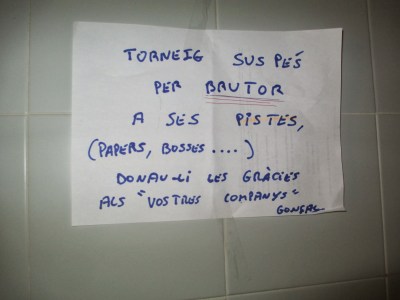 TORNEIG SUSPÉS
PER BRUTOR
A SES PISTES,
(PAPERS, BOSSES....)
DONAU-LI LES GRÀCIES
ALS "VOSTRES COMPANYS"
GONÇAL